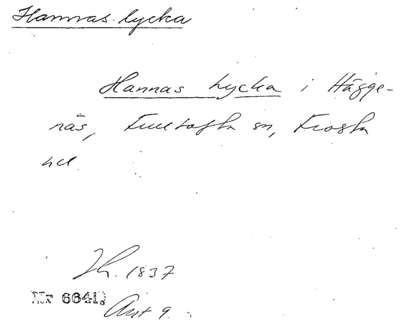 Hannas lycka
Hannas lycka i Hägge-
näs, Fulltofta sn, Frosta
hd.
Jh. 1837
Nr 6641
Ant 9.